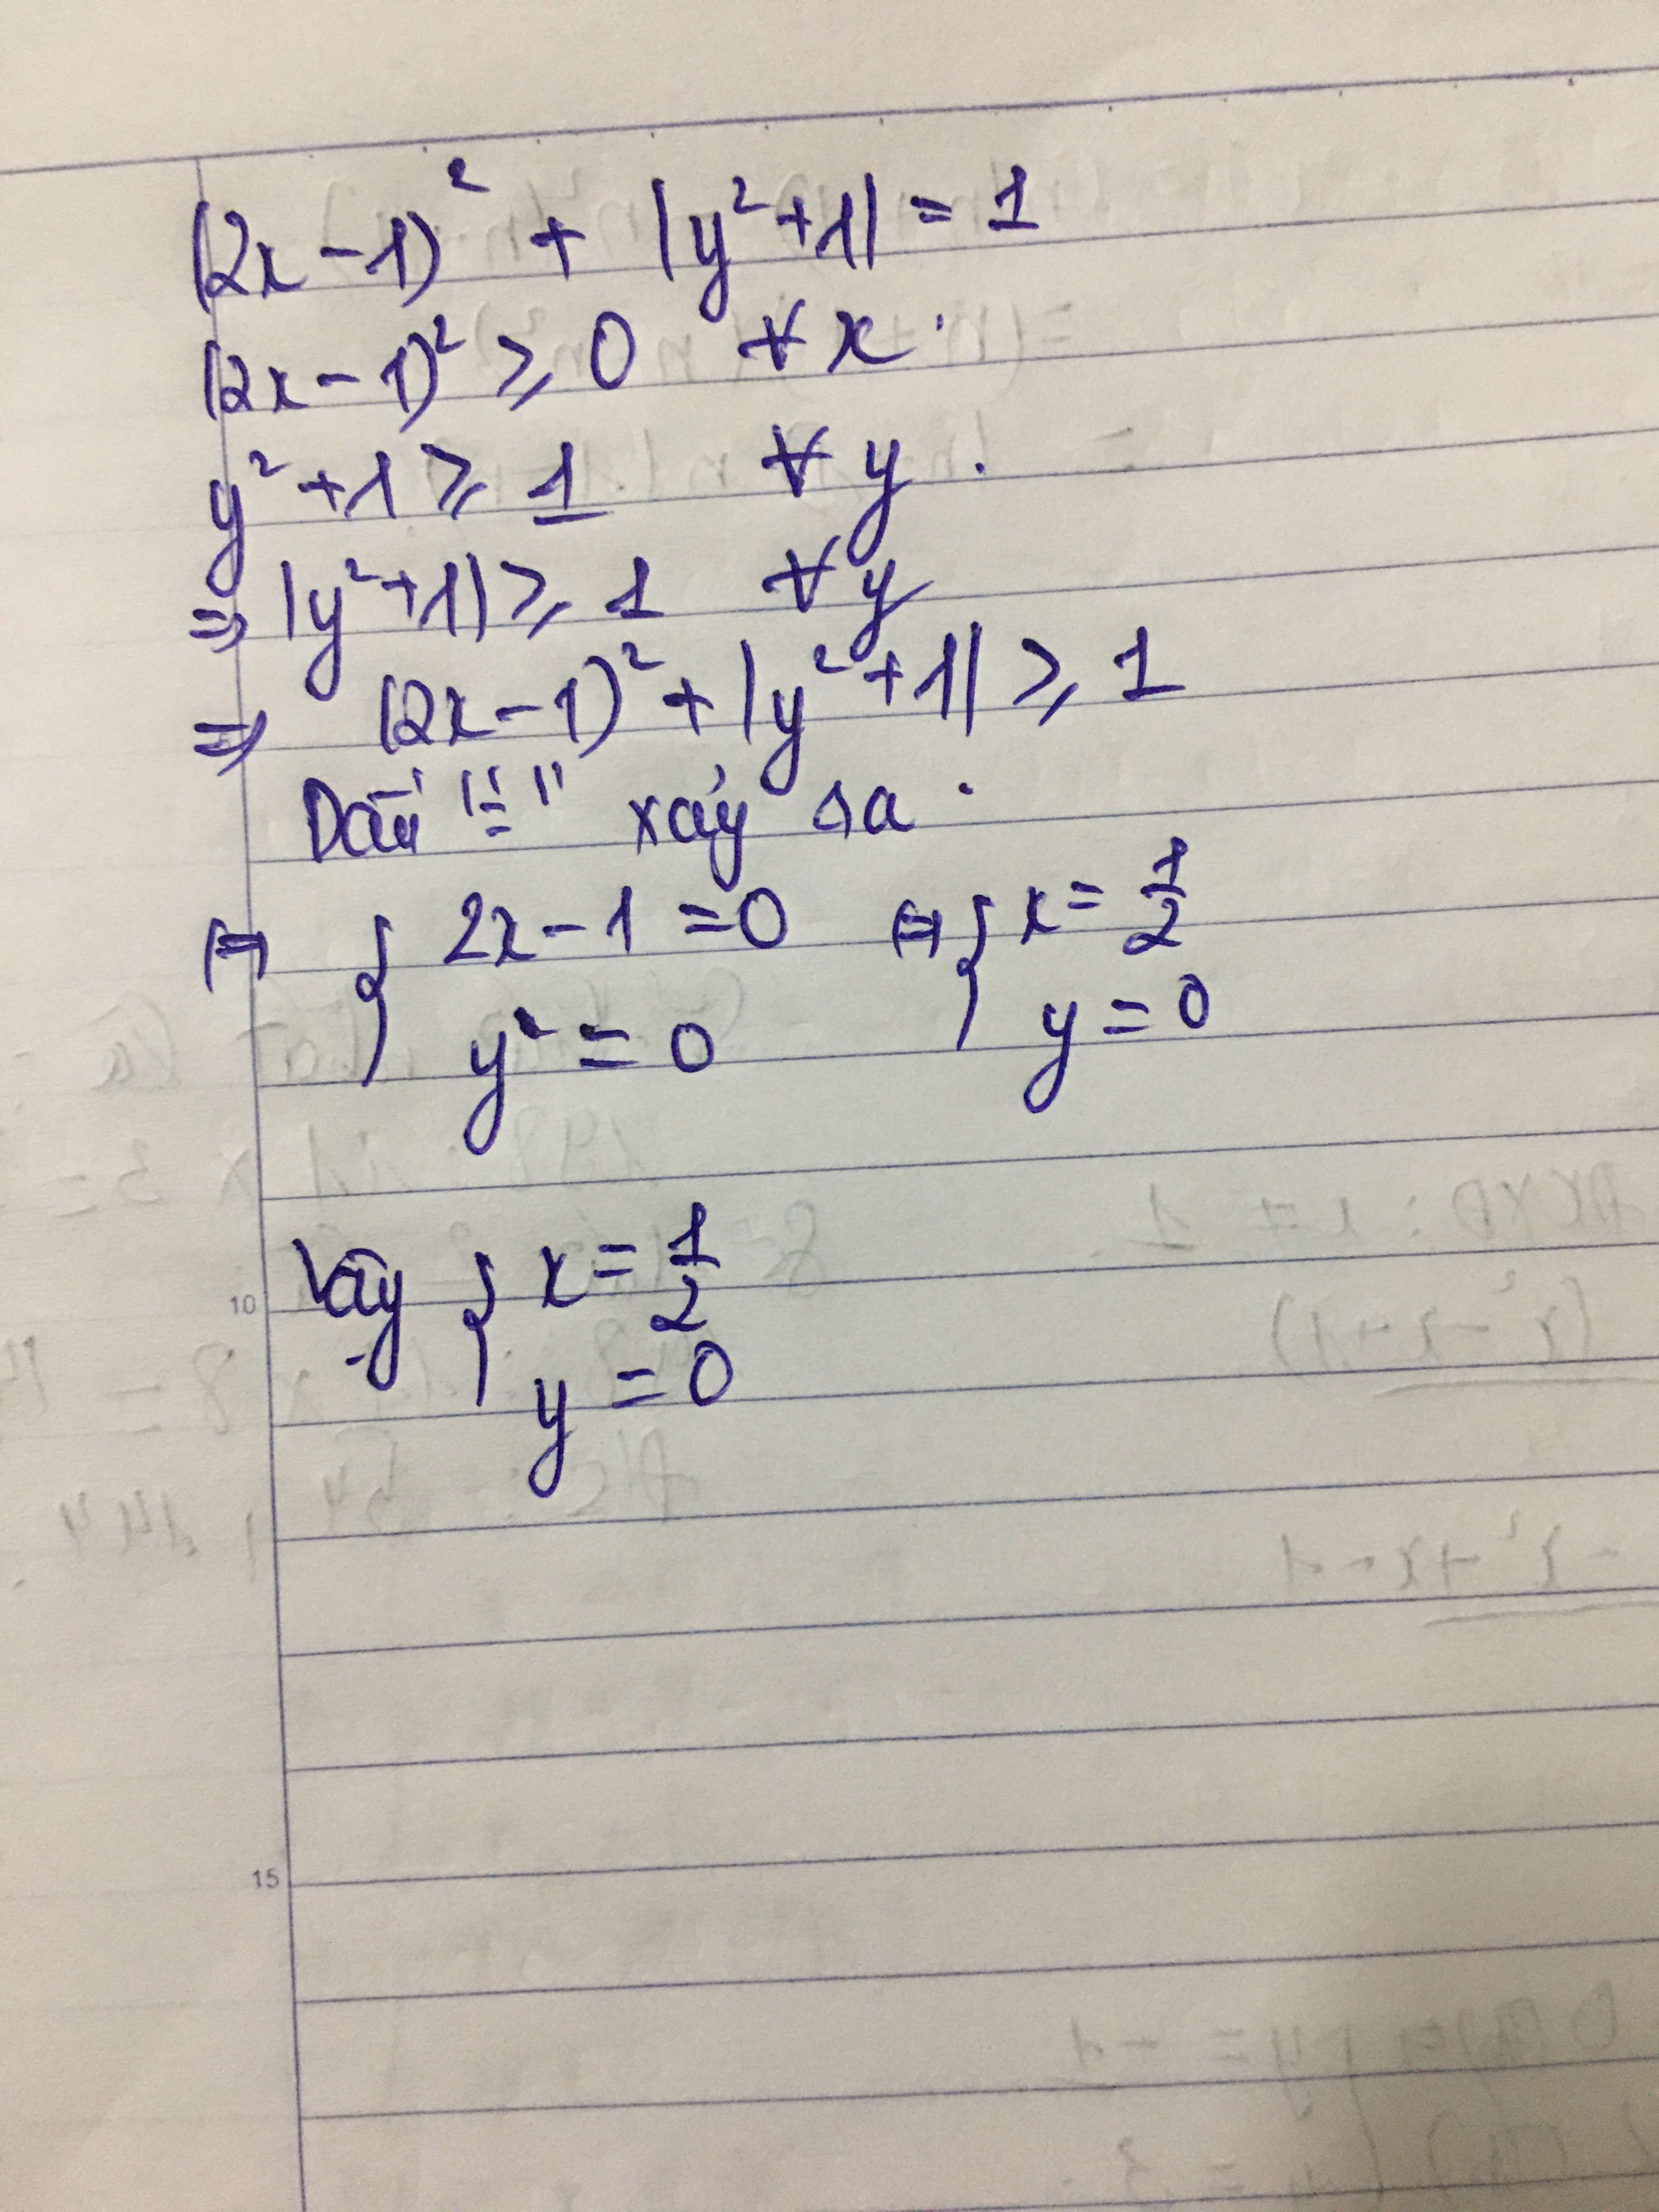 (2x-1)² + |y²+1| = 1
(2x-1)² ≥ 0 ∀x.
y²+1 ≥ 1 ∀y.
⇒ |y²+1| ≥ 1 ∀y
⇒ (2x-1)² + |y²+1| ≥ 1
Dấu "=" xảy ra.
⇔ { 2x-1 = 0 ⇔ { x = 1/2
y² = 0 y = 0
Vậy { x = 1/2
y = 0
10
15